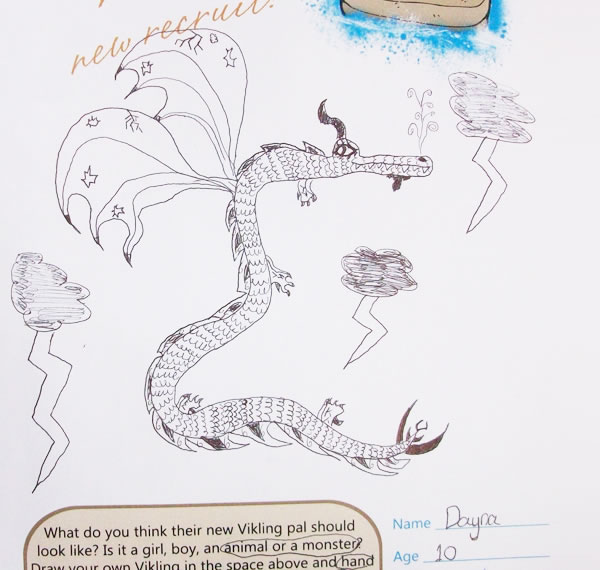 new recruit!
What do you think their new Vikling pal should
look like? Is it a girl, boy, an animal or a monster?
Draw your own Vikling in the space above and hand
Name Dayna
Age 10